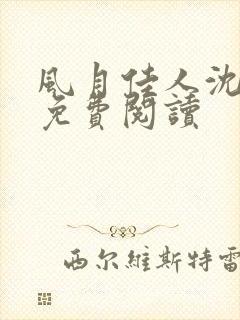 風月佳人沈
免費閱讀
西尔維斯特雷